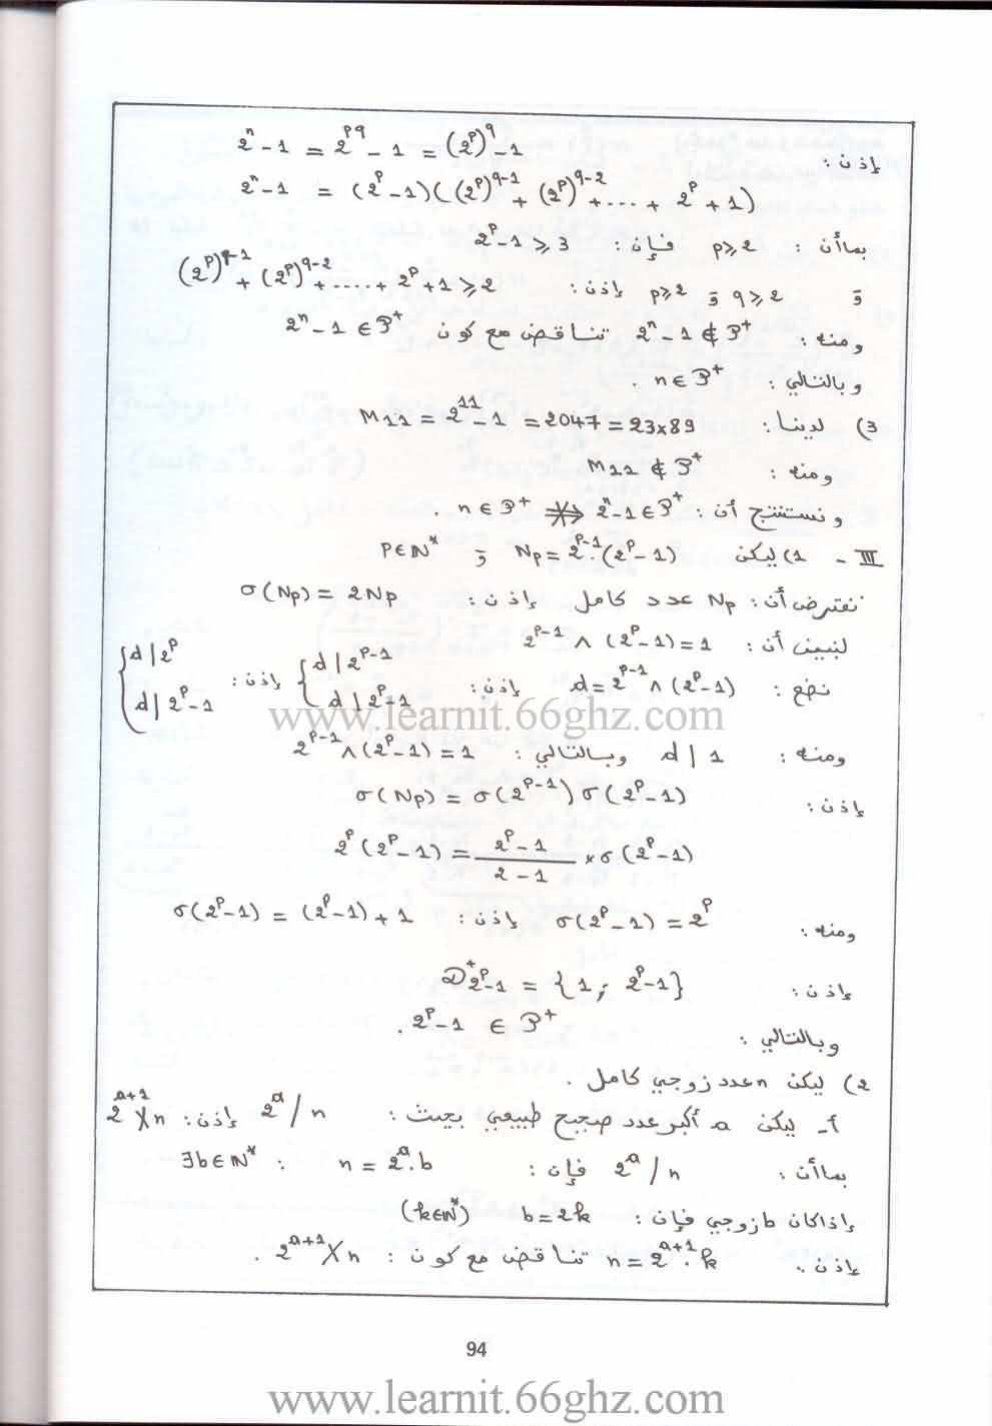 إذن : 2^n - 1 = 2^{pq} - 1 = (2^p)^q - 1
2^n - 1 = (2^p - 1)((2^p)^{q-1} + (2^p)^{q-2} + .... + 2^p + 1)
بماأن : p ⩾ 2 فإن : 2^p - 1 ⩾ 3
و q ⩾ 2 و p ⩾ 2 إذن : (2^p)^{q-1} + (2^p)^{q-2} + ..... + 2^p + 1 ⩾ 2
ومنه : 2^n - 1 ∉ P^+ تناقض مع كون 2^n - 1 ∈ P^+
وبالتالي : n ∈ P^+ .
3) لدينا : M11 = 2^{11} - 1 = 2047 = 23x89
ومنه : M11 ∉ P^+
ونستنتج أن : n ∈ P^+ ⇏ 2^n - 1 ∈ P^+ .
III - 1) ليكن Np = 2^{p-1}.(2^p - 1) و P ∈ N^*
نفترض أن : Np عدد كامل إذن : σ(Np) = 2Np
لنبين أن : 2^{p-1} ∧ (2^p - 1) = 1
نضع : d = 2^{p-1} ∧ (2^p - 1) إذن : { d | 2^{p-1} d | 2^p - 1 إذن : { d | 2^p d | 2^p - 1
www.learnit.66ghz.com
ومنه : d | 1 وبالتالي : 2^{p-1} ∧ (2^p - 1) = 1
إذن : σ(Np) = σ(2^{p-1}) σ(2^p - 1)
2^p (2^p - 1) = \frac{2^p - 1}{2 - 1} × σ(2^p - 1)
ومنه : σ(2^p - 1) = 2^p إذن : σ(2^p - 1) = (2^p - 1) + 1
إذن : D^+_{2^p - 1} = {1 ; 2^p - 1}
وبالتالي : 2^p - 1 ∈ P^+ .
2) ليكن n عدد زوجي كامل .
أ- ليكن a أكبر عدد صحيح طبيعي بحيث : 2^a / n إذن : 2^{a+1} ∤ n
بماأن : 2^a / n فإن : n = 2^a.b : ∃b ∈ N^*
إذاكان b زوجي فإن : b = 2k (k ∈ N^*)
إذن : n = 2^{a+1}.k تناقض مع كون : 2^{a+1} ∤ n .
94
www.learnit.66ghz.com